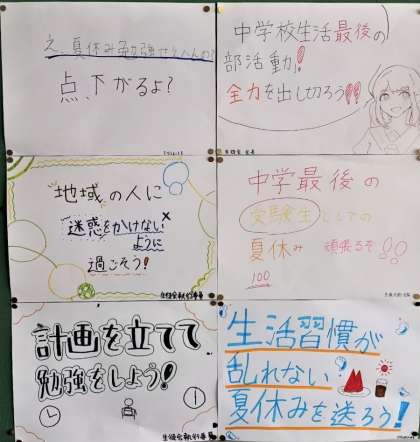 え、夏休み勉強せりへんの?
点、下がるよ?
中学校生活最後の
部活動!
全力を出し切ろう!!
生徒会 会長
地域の人に
迷惑をかけない
ように
過ごそう!
生徒会執行委員
中学最後の
受験生としての
夏休み 頑張るぞ!!
100
計画を立てて
勉強をしよう!
生徒会執行委員
生活習慣が
乱れない
夏休みを送ろう!